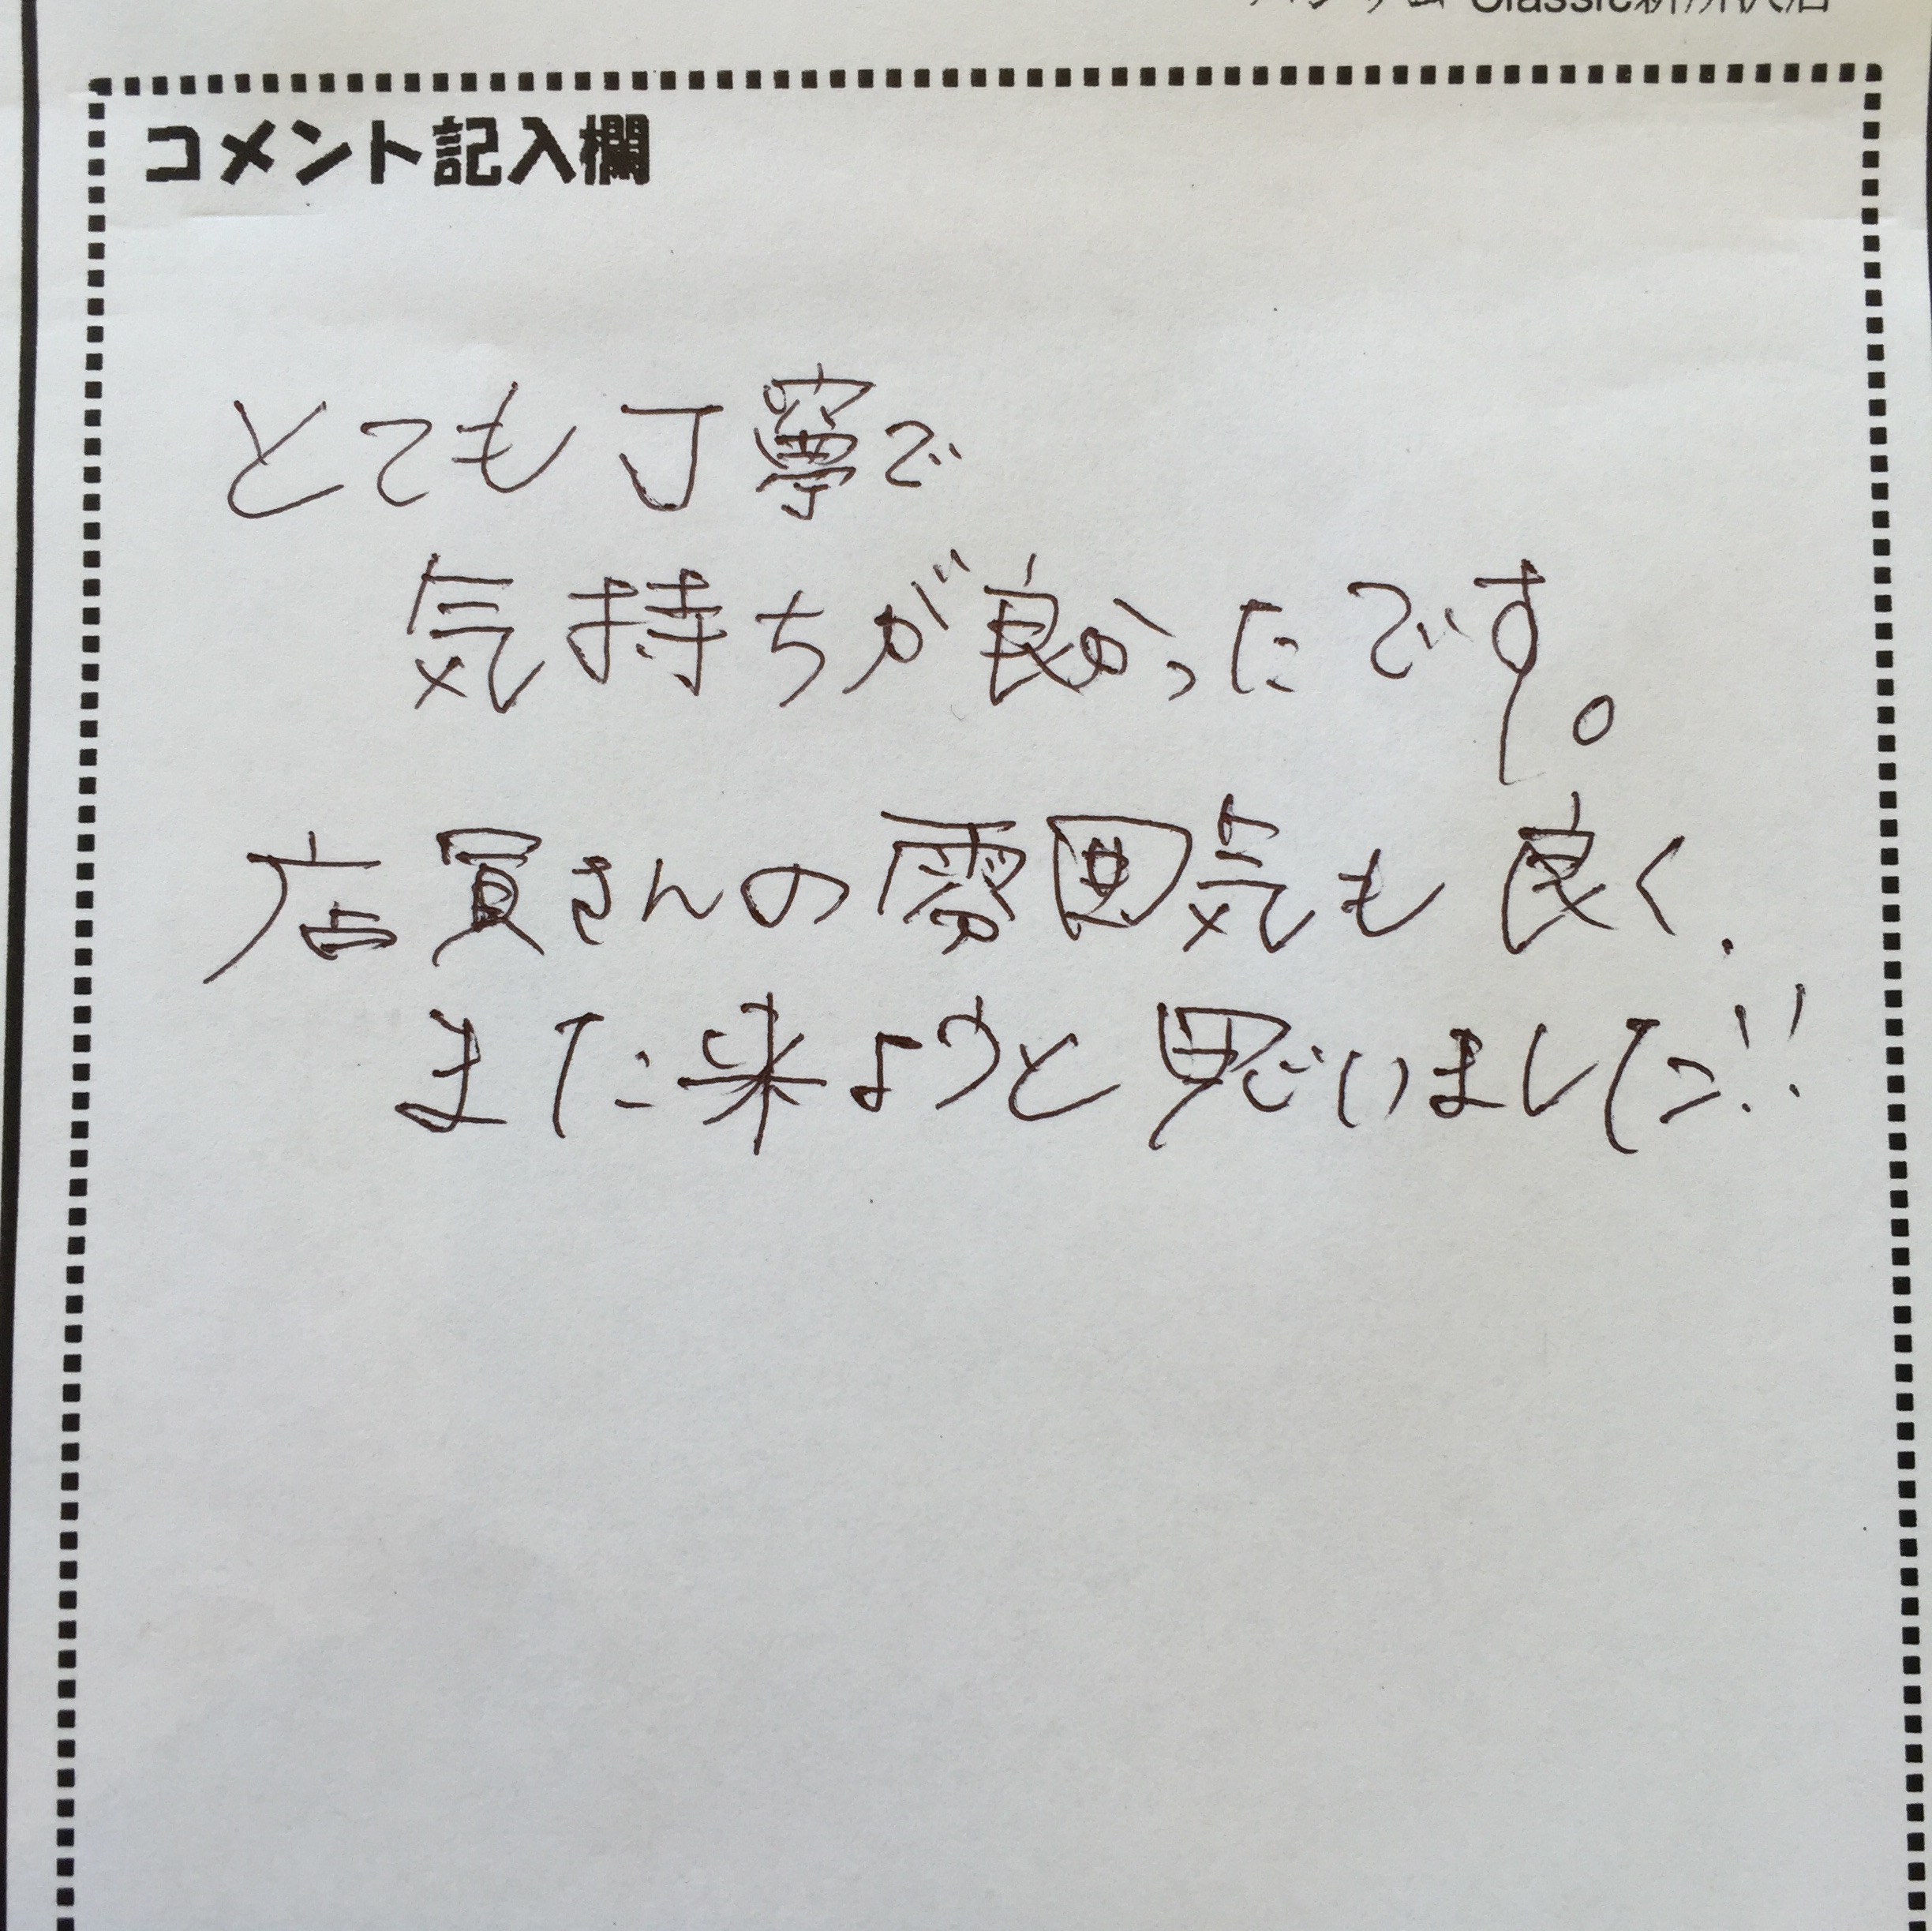 Classic新所沢店
コメント記入欄
とても丁寧で
気持ちが良かったです。
店員さんの雰囲気も良く、
また来ようと思いました!!